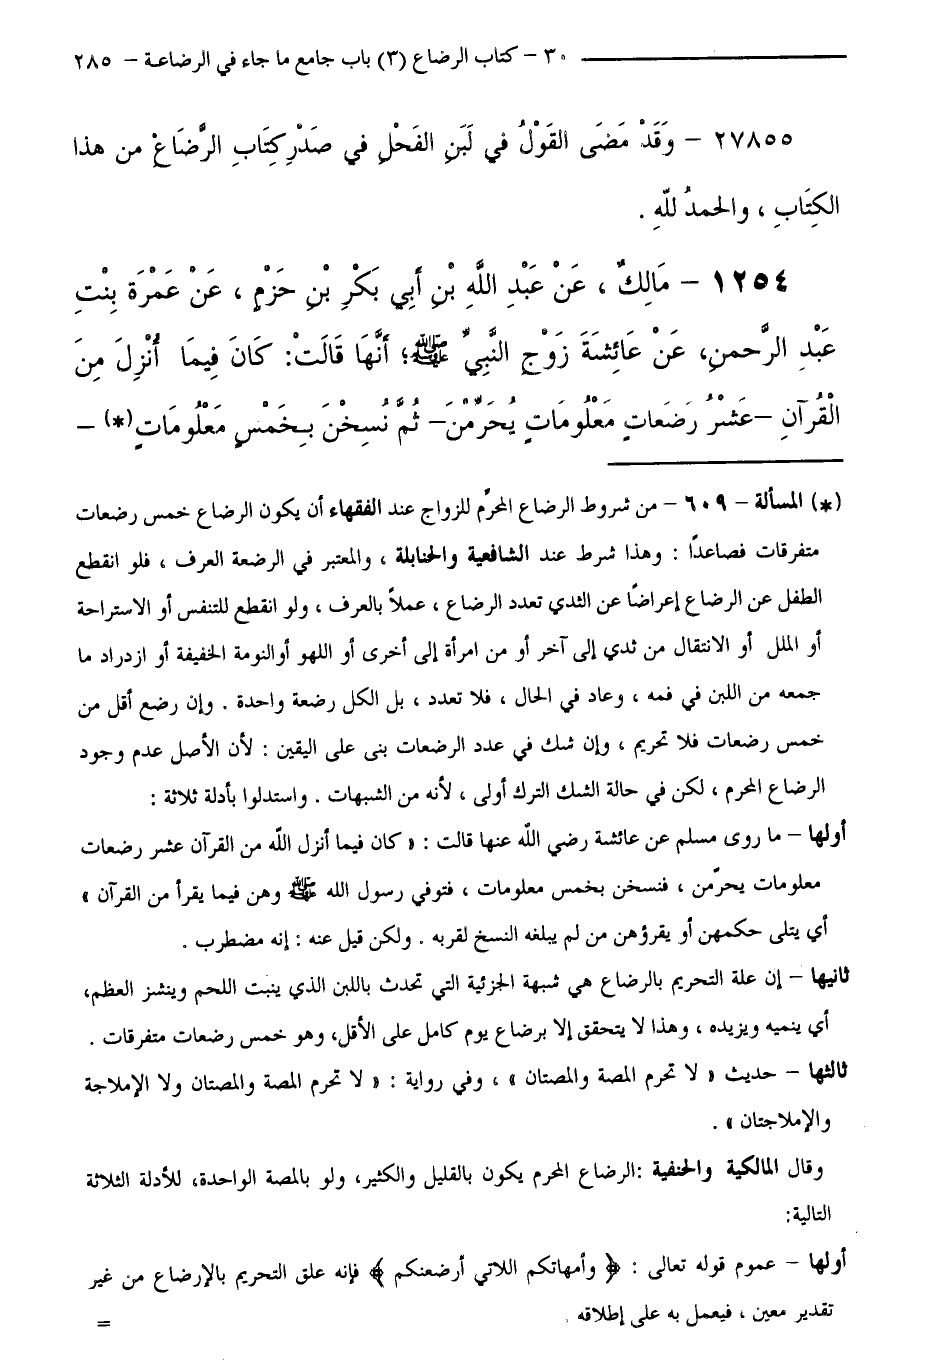 ٣٠ – كتاب الرضاع (٣) باب جامع ما جاء في الرضاعة – ٢٨٥
٢٧٨٥٥ – وَقَدْ مَضَى القَوْلُ في لَبَنِ الفَحْلِ في صَدْرِ كِتَابِ الرَّضَاعِ من هذا
الكِتَابِ ، والحمدُ للَّهِ .
١٢٥٤ – مَالِكٌ ، عَنْ عَبْدِ اللَّهِ بْنِ أَبِي بَكْرِ بْنِ حَزْمٍ ، عَنْ عَمْرَةَ بِنْتِ
عَبْدِ الرَّحمنِ، عَنْ عَائِشَةَ زَوْجِ النَّبِيِّ ﷺ؛ أَنَّهَا قَالَتْ: كَانَ فِيمَا أُنْزِلَ مِنَ
الْقُرْآنِ –عَشْرُ رَضَعَاتٍ مَعْلُومَاتٍ يُحَرِّمْنَ– ثُمَّ نُسِخْنَ بِخَمْسٍ مَعْلُومَاتٍ(*) –
(*) المسألة – ٦٠٩ – من شروط الرضاع المحرِّم للزواج عند الفقهاء أن يكون الرضاع خمس رضعات
متفرقات فصاعدًا : وهذا شرط عند الشافعية والحنابلة ، والمعتبر في الرضعة العرف ، فلو انقطع
الطفل عن الرضاع إعراضًا عن الثدي تعدد الرضاع ، عملاً بالعرف ، ولو انقطع للتنفس أو الاستراحة
أو الملل أو الانتقال من ثدي إلى آخر أو من امرأة إلى أخرى أو اللهو أوالنومة الخفيفة أو ازدراد ما
جمعه من اللبن في فمه ، وعاد في الحال ، فلا تعدد ، بل الكل رضعة واحدة . وإن رضع أقل من
خمس رضعات فلا تحريم ، وإن شك في عدد الرضعات بنى على اليقين : لأن الأصل عدم وجود
الرضاع المحرم ، لكن في حالة الشك الترك أولى ، لأنه من الشبهات . واستدلوا بأدلة ثلاثة :
أولها – ما روى مسلم عن عائشة رضي الله عنها قالت : « كان فيما أنزل الله من القرآن عشر رضعات
معلومات يحرِّمن ، فنسخن بخمس معلومات ، فتوفي رسول الله ﷺ وهن فيما يقرأ من القرآن »
أي يتلى حكمهن أو يقرؤهن من لم يبلغه النسخ لقربه . ولكن قيل عنه : إنه مضطرب .
ثانيها – إن علة التحريم بالرضاع هي شبهة الجزئية التي تحدث باللبن الذي ينبت اللحم وينشز العظم،
أي ينميه ويزيده ، وهذا لا يتحقق إلا برضاع يوم كامل على الأقل، وهو خمس رضعات متفرقات .
ثالثها – حديث « لا تحرم المصة والمصتان » ، وفي رواية : « لا تحرم المصة والمصتان ولا الإملاجة
والإملاجتان » .
وقال المالكية والحنفية :الرضاع المحرم يكون بالقليل والكثير، ولو بالمصة الواحدة، للأدلة الثلاثة
التالية:
أولها – عموم قوله تعالى : ﴿ وأمهاتكم اللاتي أرضعنكم ﴾ فإنه علق التحريم بالإرضاع من غير
تقدير معين ، فيعمل به على إطلاقه .
=